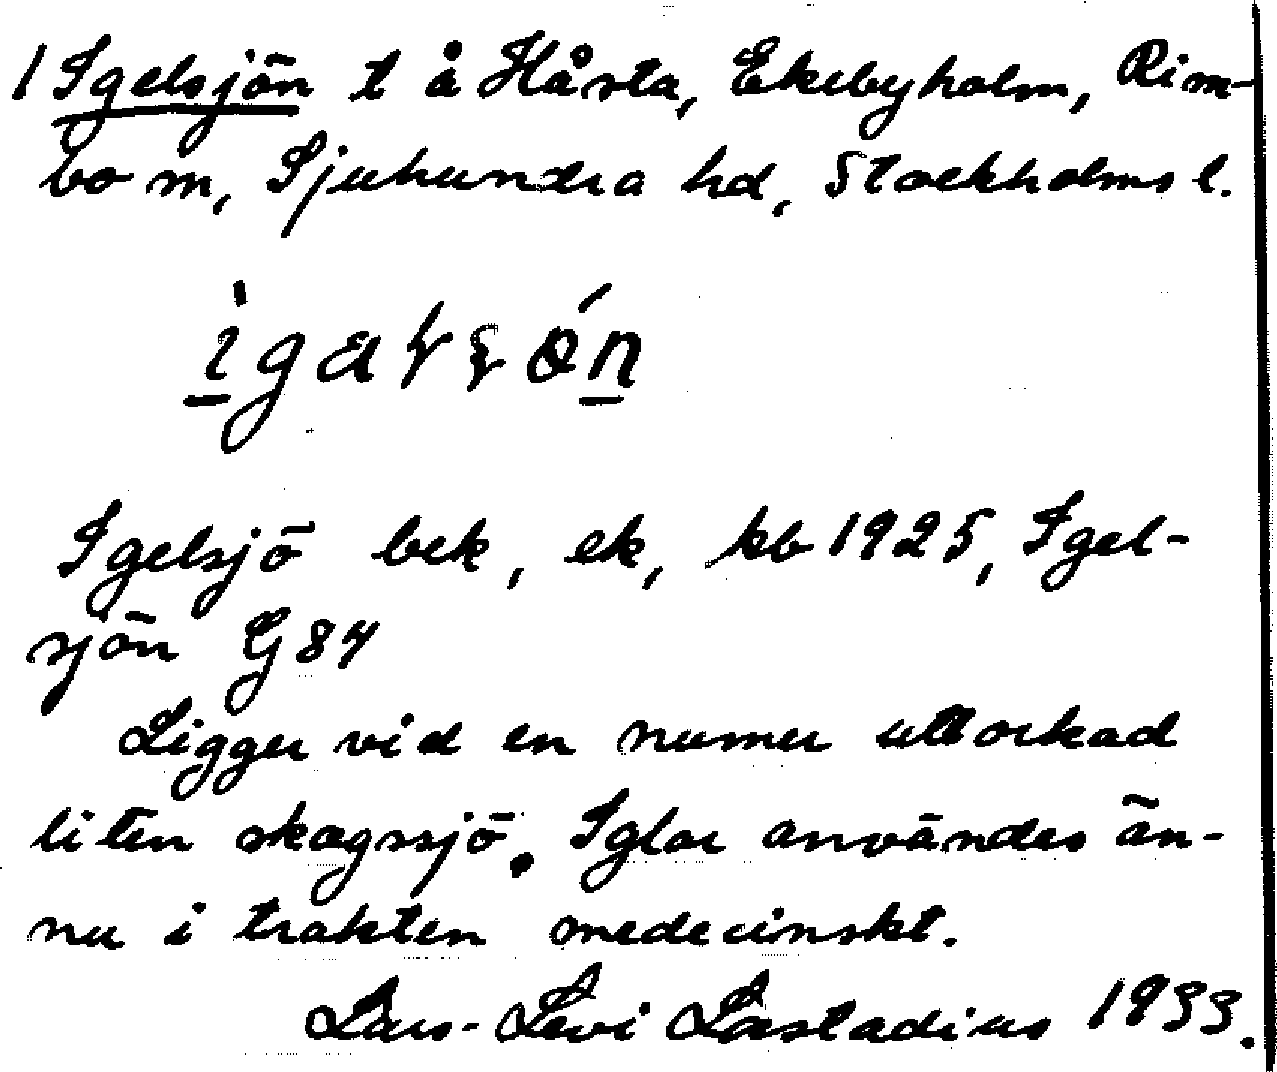 1 Igelsjön t å Håsta, Ekebyholm, Rim-
bo sn, Sjuhundra hd, Stockholms l.
Igelsjö bek, ek, kb 1925, Igel-
sjön G 84
Ligger vid en numer uttorkad
liten skogssjö. Iglar användes än-
nu i trakten medecinskt.
Lars-Levi Læstadius 1933.